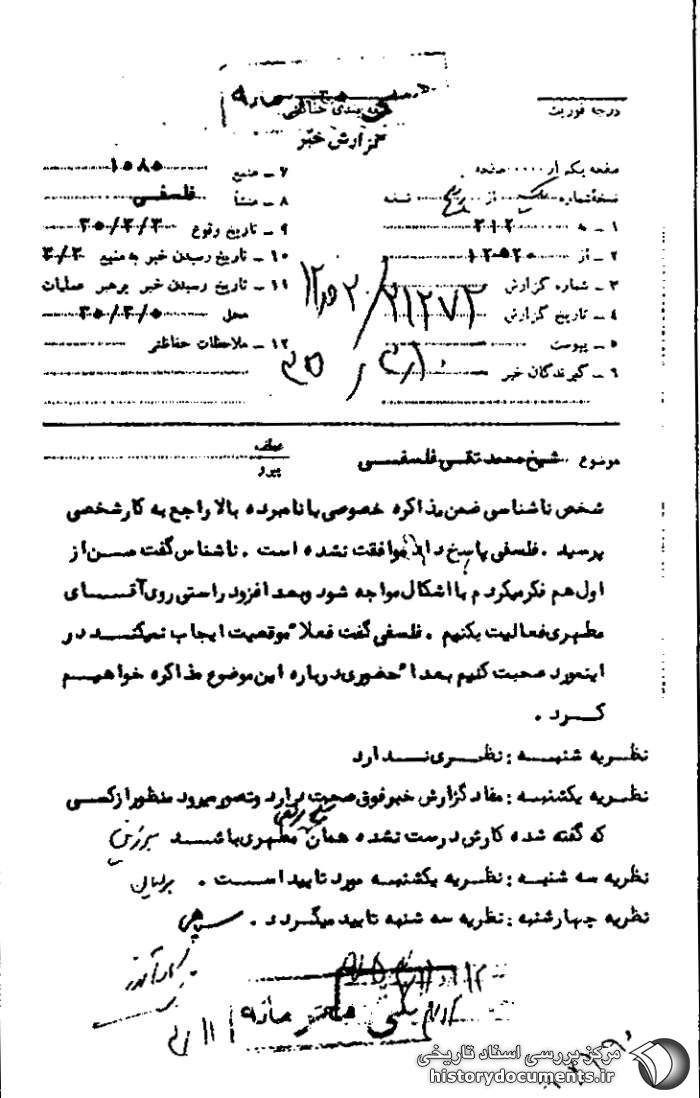 خیلی محرمانه
طبقه بندی حفاظتی
درجه فوریت
گزارش خبر
صفحه یکم از ..... صفحه
نسخه شماره یک از پنج نسخه
۱ - به ۳۱۲
۲ - از ۱۲۵۲۰
۳ - شماره گزارش ۲۱۲۷۳ / ۲۰ ه‍ ۱۲
۴ - تاریخ گزارش
۵ - پیوست
۶ - گیرندگان خبر
۷ - منبع ۱۵۸۵
۸ - منشأ فلسفی
۹ - تاریخ وقوع ۳۵/۳/۳
۱۰ - تاریخ رسیدن خبر به منبع ۳/۳
۱۱ - تاریخ رسیدن خبر برهبر عملیات
محل ۳۵/۳/۵
۱۲ - ملاحظات حفاظتی
موضوع شیخ محمد تقی فلسفی
عطف
پیرو
شخص ناشناسی ضمن مذاکره خصوصی با نامبرده بالا راجع به کار شخصی
پرسید . فلسفی پاسخ داد موافقت نشده است . ناشناس گفت من از
اول هم فکر میکردم با اشکال مواجه شود و بعد افزود راستی روی آقای
مطهری فعالیت بکنیم . فلسفی گفت فعلا" موقعیت ایجاب نمیکند در
اینمورد صحبت کنیم بعدا" حضوری درباره این موضوع مذاکره خواهیم
کرد .
نظریه شنبه : نظری ندارد
نظریه یکشنبه : مفاد گزارش خبر فوق صحت دارد و تصور میرود منظور از کسی
که گفته شده کارش درست نشده همان مطهری باشد
نظریه سه شنبه : نظریه یکشنبه مورد تایید است .
نظریه چهارشنبه : نظریه سه شنبه تایید میگردد .
خیلی محرمانه
مرکز بررسی اسناد تاریخی
historydocuments.ir